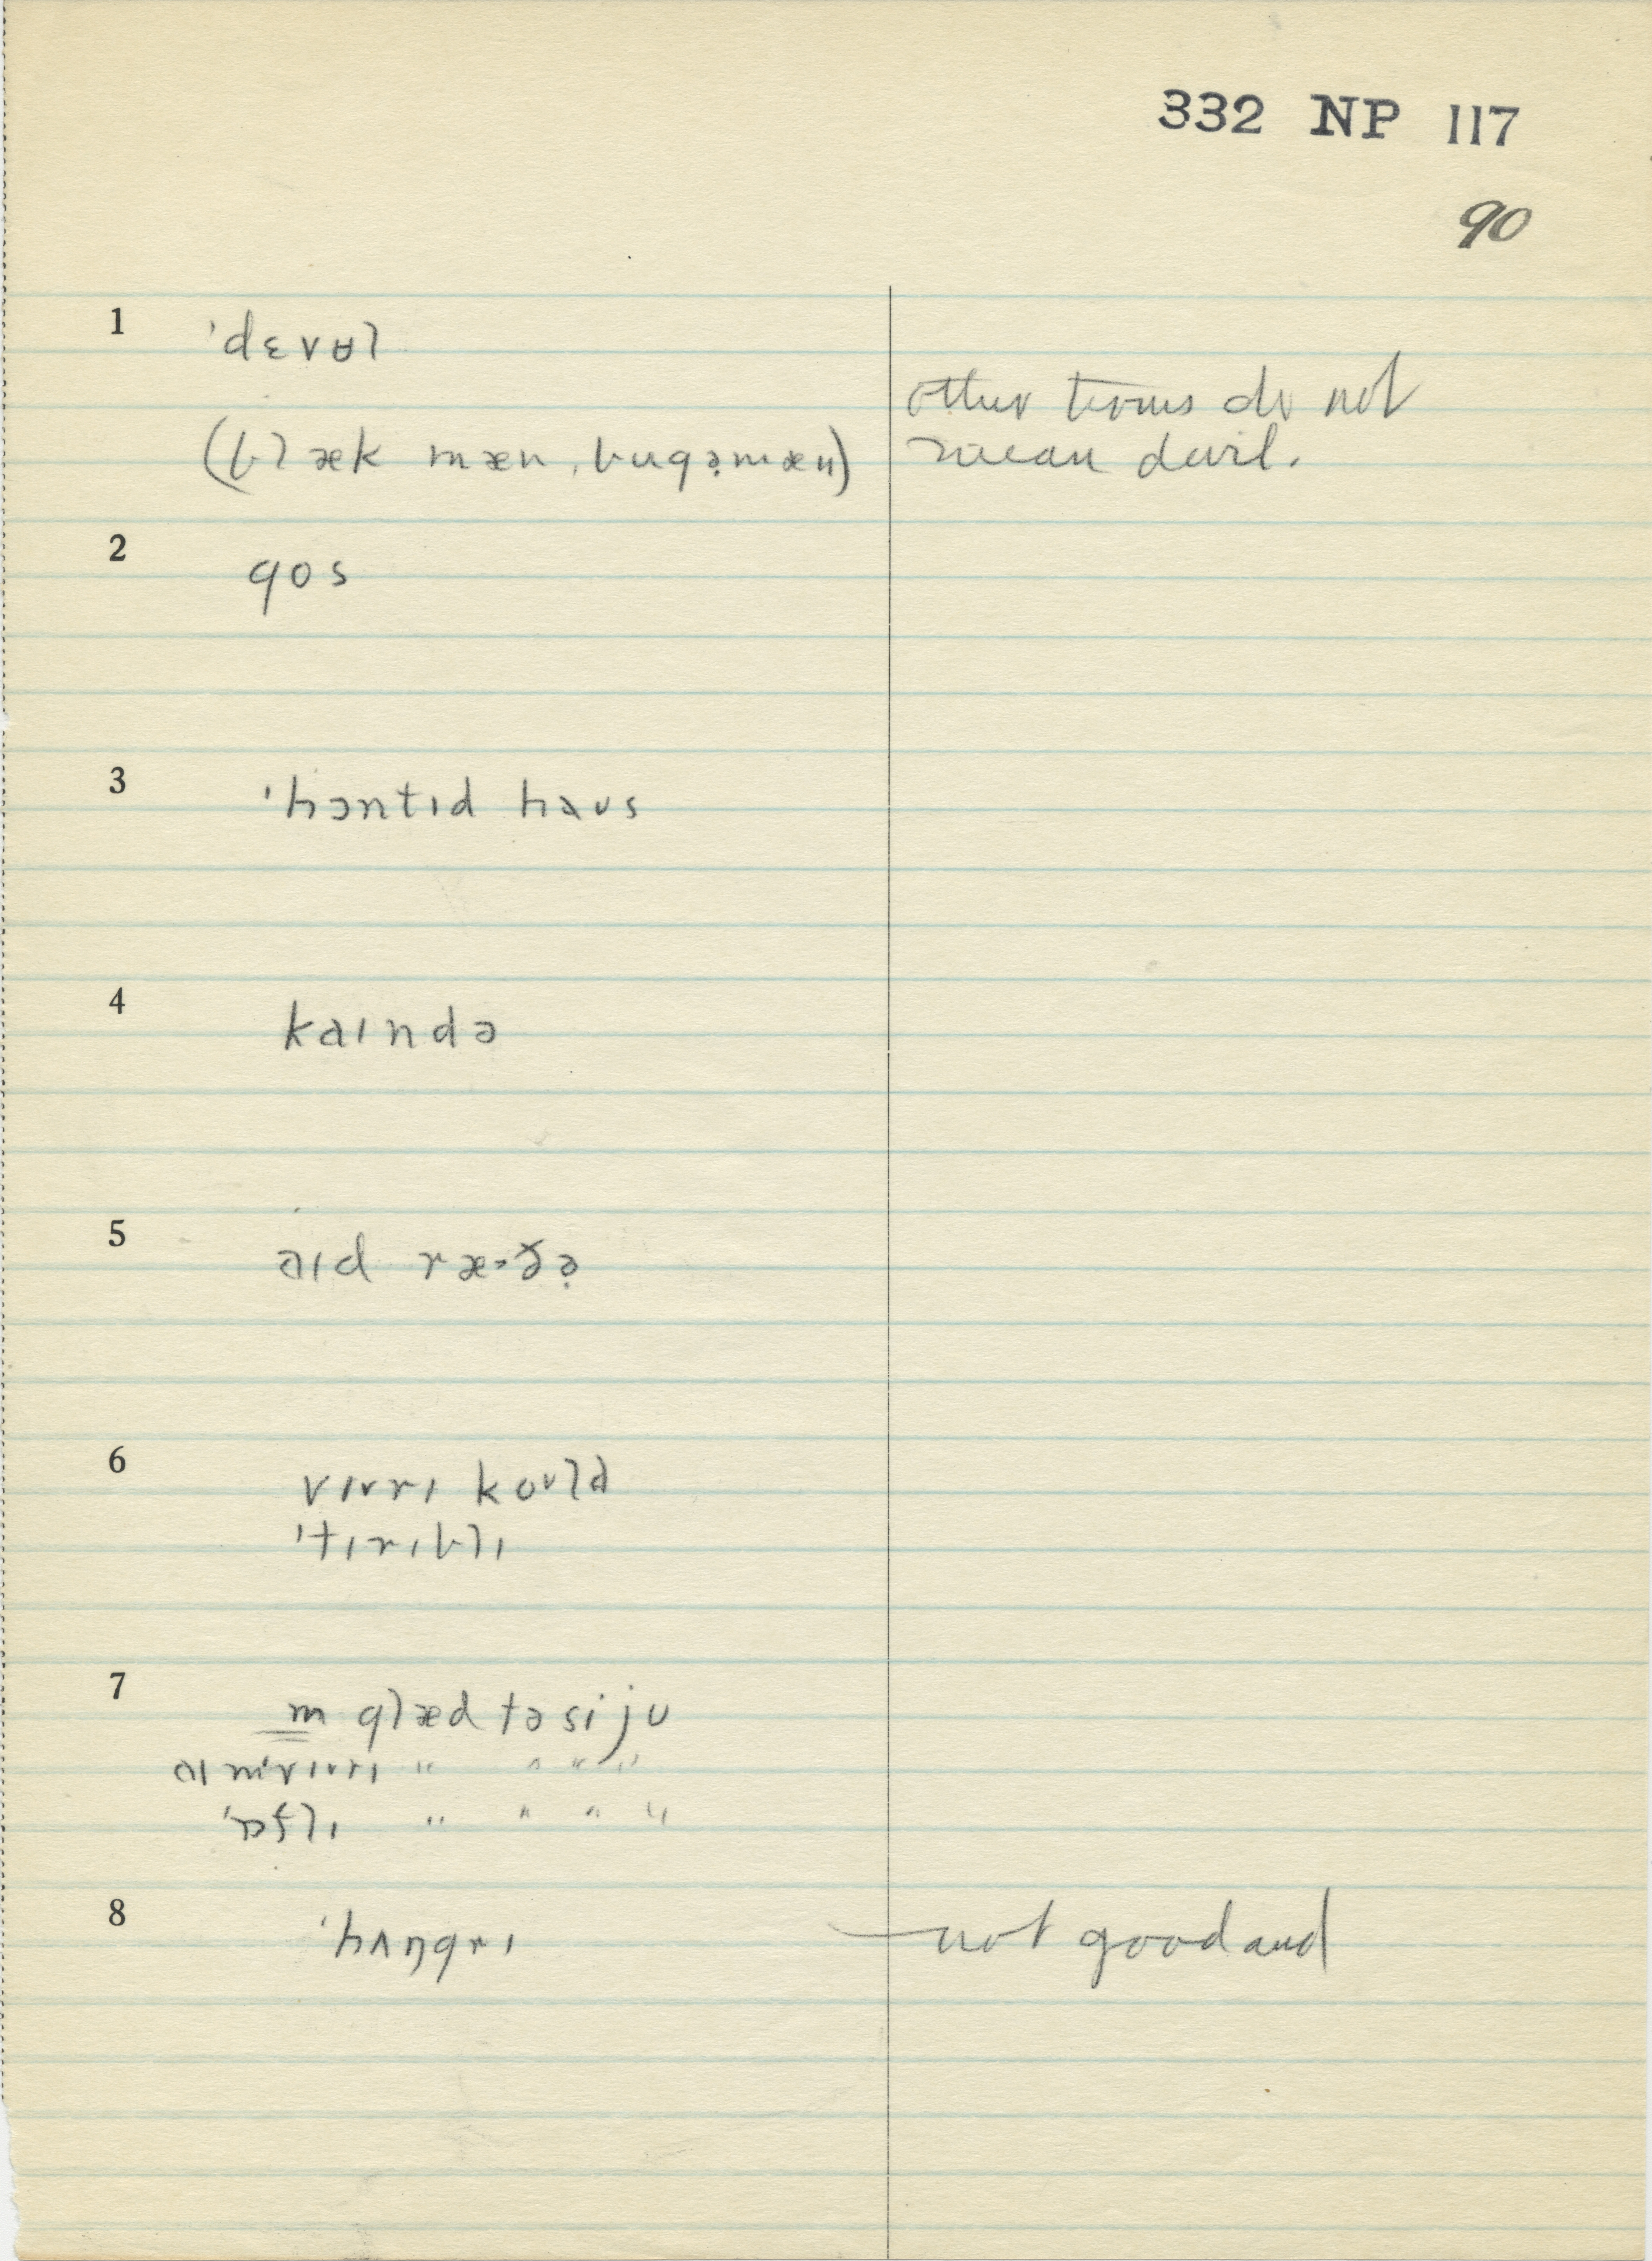 332 NP 117
90
1 ˈdɛvʉl
other terms do not
(blæk mæn, bugə̣mæn)
mean devil.
2 gos
3 ˈhɔntɪd haʊs
4 kaɪndə
5 aɪd ræ˃ðə̣
6 vɪʌrɪ koʊld
ˈtɪrɪblɪ
7 m glæd tə si ju
aɪ mˈvɪʌrɪ " " " "
ˈɒflɪ " " " "
8 ˈhʌŋgrɪ
— not good and